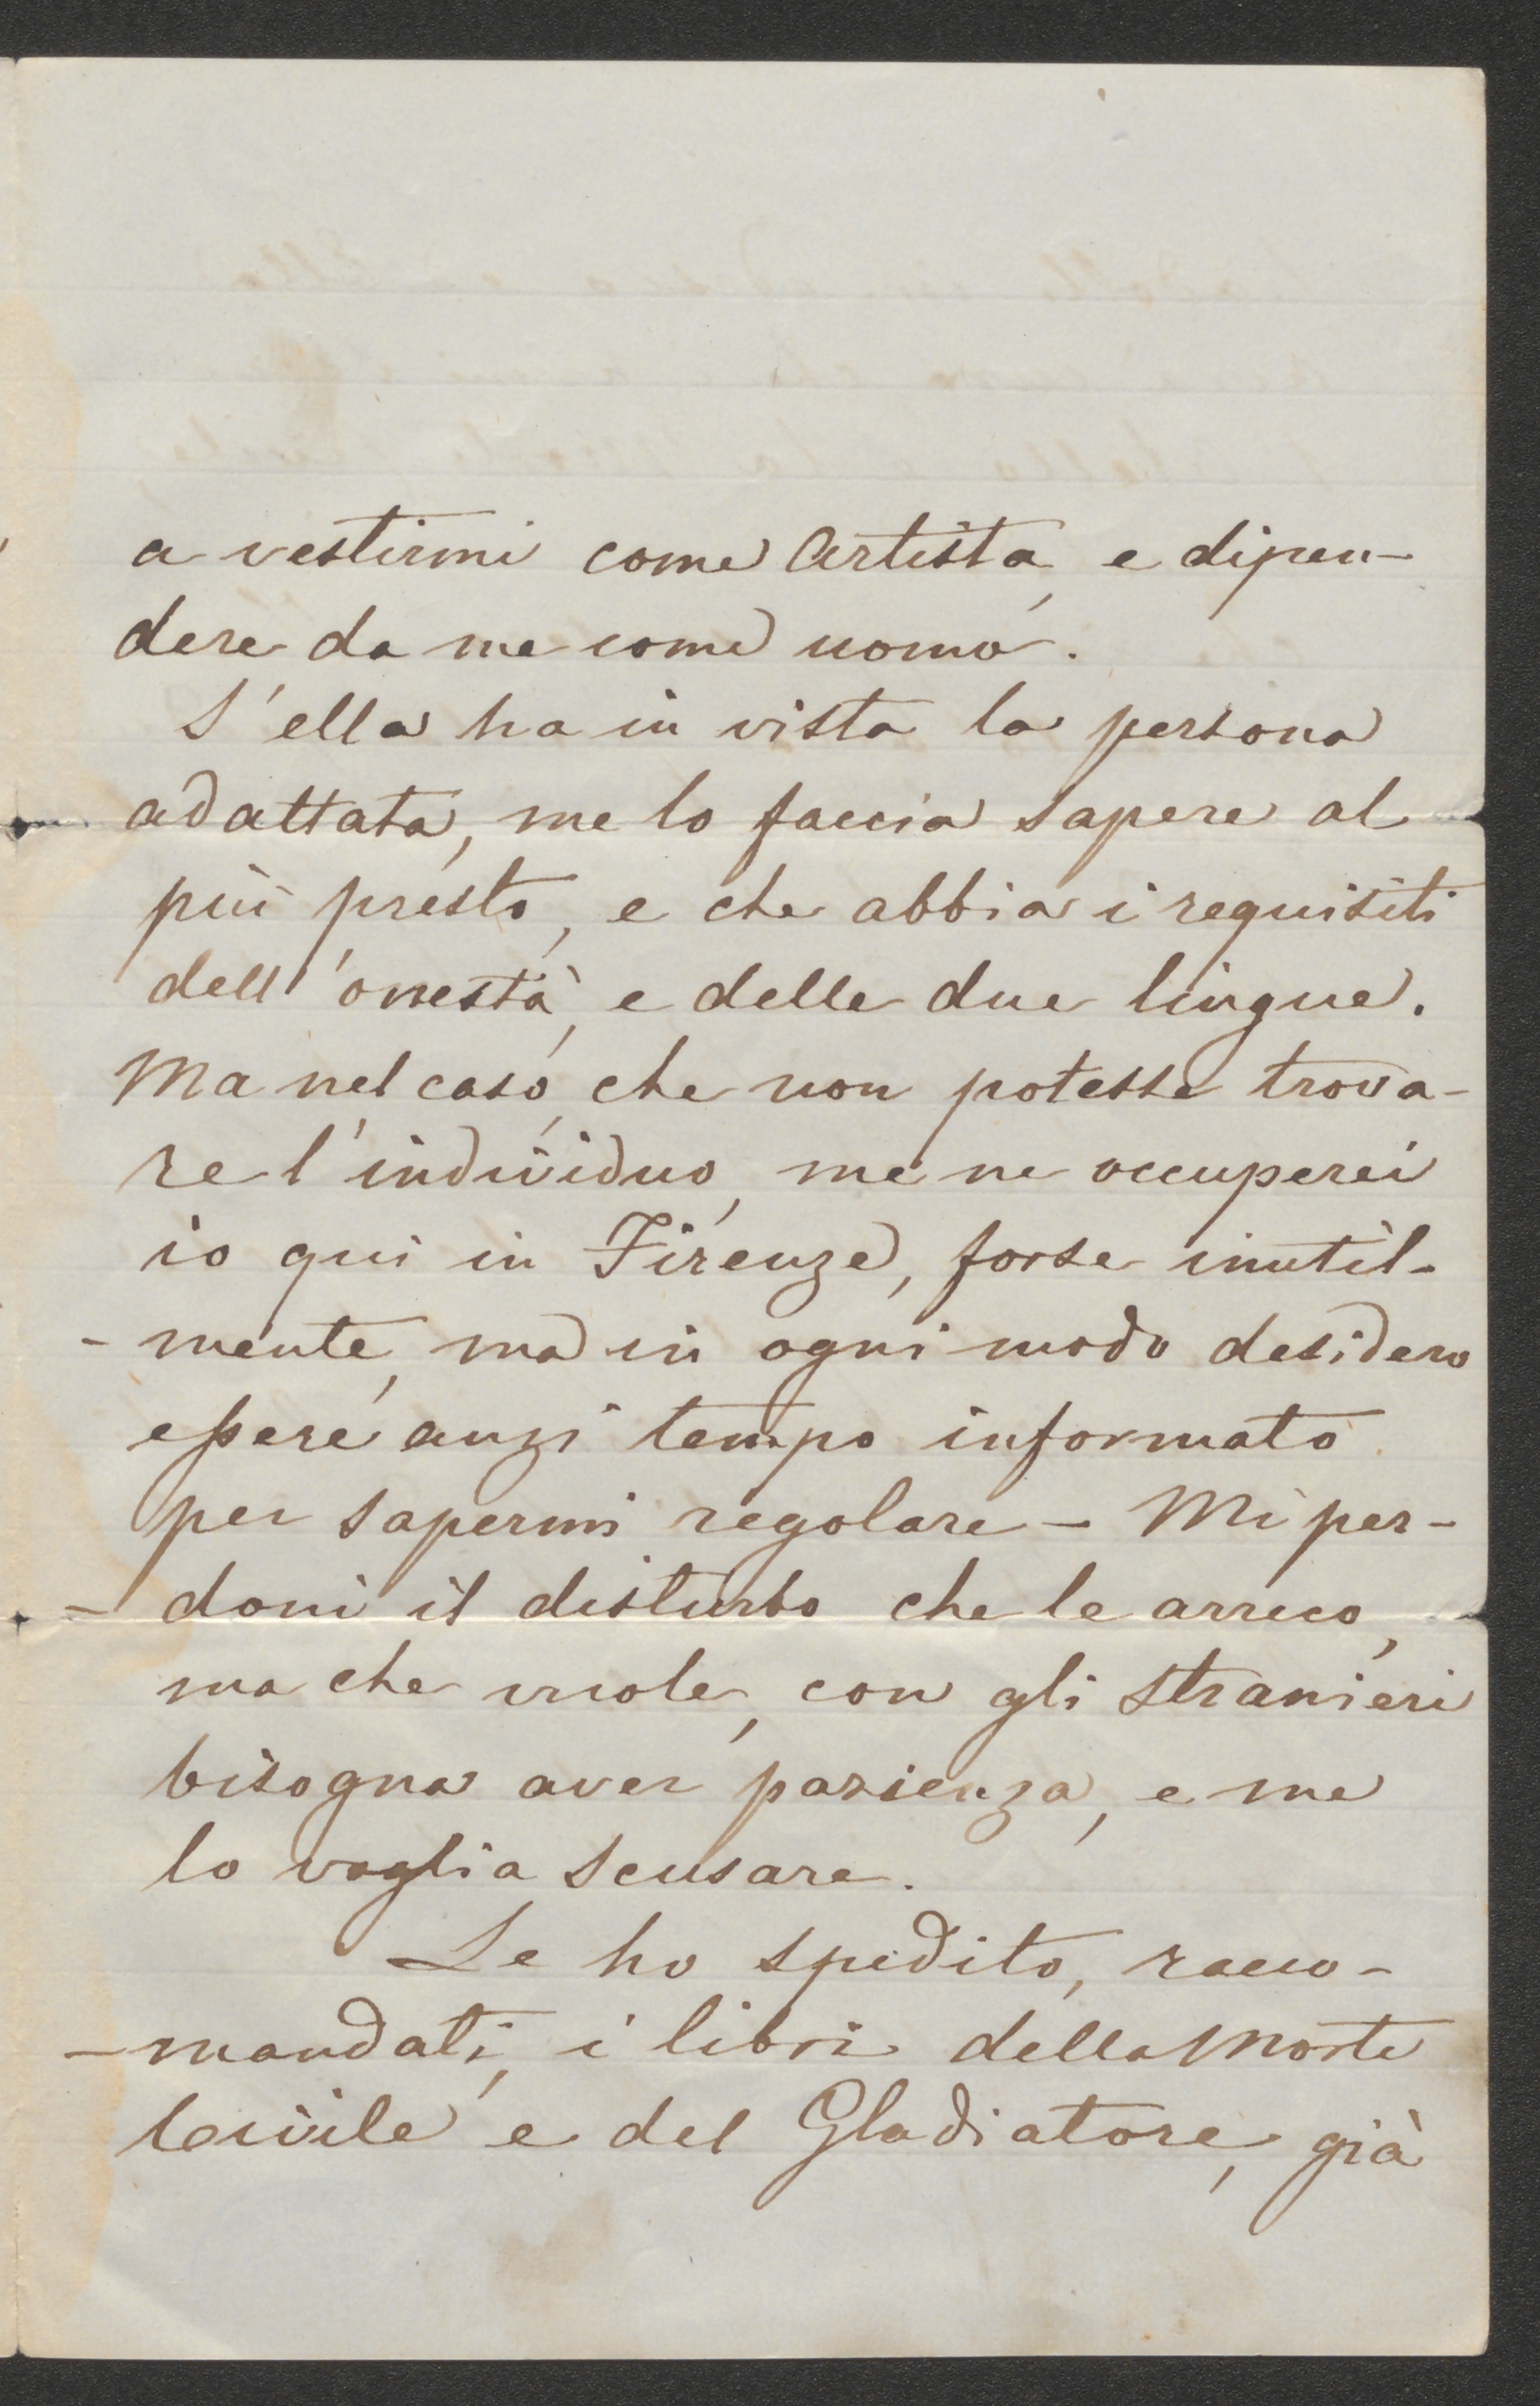 a vestirmi come Artista, e dipen-
dere da me come uomo.
S'ella ha in vista la persona
adattata, me lo faccia sapere al
più presto, e che abbia i requisiti
dell'onestà, e delle due lingue.
Ma nel caso, che non potesse trova-
re l'individuo, me ne occuperei
io qui in Firenze, forse inutil-
-mente, ma in ogni modo desidero
essere anzi tempo informato
per sapermi regolare - Mi per-
-doni il disturbo che le arreco,
ma che vuole, con gli stranieri
bisogna aver pazienza, e me
lo voglia scusare.
Le ho spedito, racco-
-mandati, i libri della Morte
Civile e del Gladiatore, già